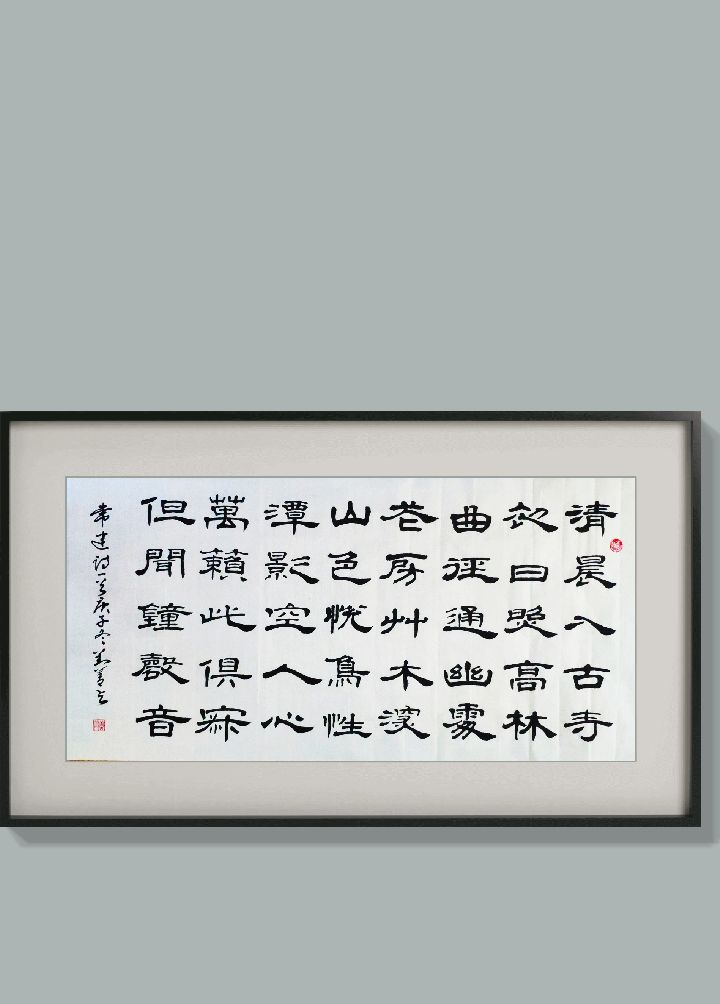 清晨入古寺
初日照高林
曲徑通幽處
花房艸木深
山色悦鳥性
潭影空人心
萬籟此俱寂
但聞鐘磬音
常建詩一首庚子冬